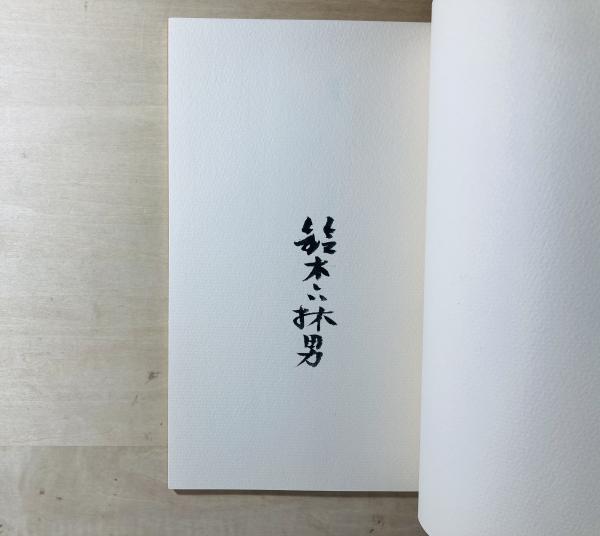 鈴木六林男